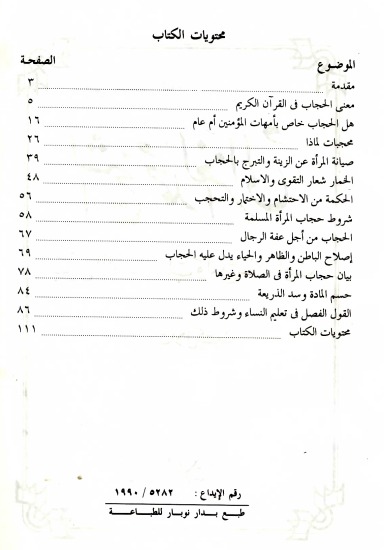 محتويات الكتاب
الموضوع الصفحة
مقدمة ٣
معنى الحجاب فى القرآن الكريم ٥
هل الحجاب خاص بأمهات المؤمنين أم عام ١٦
محجبات لماذا ٢٦
صيانة المرأة عن الزينة والتبرج بالحجاب ٣٩
الخمار شعار التقوى والاسلام ٤٨
الحكمة من الاحتشام والاختمار والتحجب ٥٦
شروط حجاب المرأة المسلمة ٥٨
الحجاب من أجل عفة الرجال ٦٧
إصلاح الباطن والظاهر والحياء يدل عليه الحجاب ٦٩
بيان حجاب المرأة فى الصلاة وغيرها ٧٨
حسم المادة وسد الذريعة ٨٤
القول الفصل فى تعليم النساء وشروط ذلك ٨٦
محتويات الكتاب ١١١
رقم الإيداع : ٥٢٨٢ / ١٩٩٠
طبع بدار نوبار للطباعة